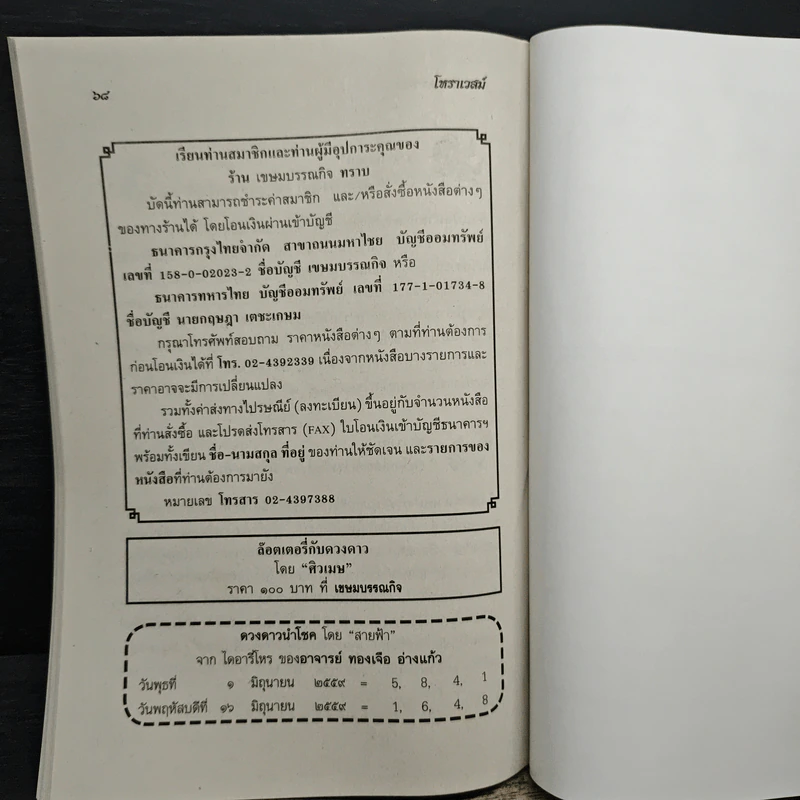 ๖๘ โหราเวสม์
เรียนท่านสมาชิกและท่านผู้มีอุปการะคุณของ
ร้าน เขษมบรรณกิจ ทราบ
บัดนี้ท่านสามารถชำระค่าสมาชิก และ/หรือสั่งซื้อหนังสือต่างๆ
ของทางร้านได้ โดยโอนเงินผ่านเข้าบัญชี
ธนาคารกรุงไทยจำกัด สาขาถนนมหาไชย บัญชีออมทรัพย์
เลขที่ 158-0-02023-2 ชื่อบัญชี เขษมบรรณกิจ หรือ
ธนาคารทหารไทย บัญชีออมทรัพย์ เลขที่ 177-1-01734-8
ชื่อบัญชี นายกฤษฎา เตชะเกษม
กรุณาโทรศัพท์สอบถาม ราคาหนังสือต่างๆ ตามที่ท่านต้องการ
ก่อนโอนเงินได้ที่ โทร. 02-4392339 เนื่องจากหนังสือบางรายการและ
ราคาอาจจะมีการเปลี่ยนแปลง
รวมทั้งค่าส่งทางไปรษณีย์ (ลงทะเบียน) ขึ้นอยู่กับจำนวนหนังสือ
ที่ท่านสั่งซื้อ และโปรดส่งโทรสาร (FAX) ใบโอนเงินเข้าบัญชีธนาคารฯ
พร้อมทั้งเขียน ชื่อ-นามสกุล ที่อยู่ ของท่านให้ชัดเจน และรายการของ
หนังสือที่ท่านต้องการมายัง
หมายเลข โทรสาร 02-4397388
ล๊อตเตอรี่กับดวงดาว
โดย “ศิวเมษ”
ราคา ๑๐๐ บาท ที่ เขษมบรรณกิจ
ดวงดาวนำโชค โดย “สายฟ้า”
จาก ไดอารี่โหร ของอาจารย์ ทองเจือ อ่างแก้ว
วันพุธที่ ๑ มิถุนายน ๒๕๕๙ = 5, 8, 4, 1
วันพฤหัสบดีที่ ๑๖ มิถุนายน ๒๕๕๙ = 1, 6, 4, 8